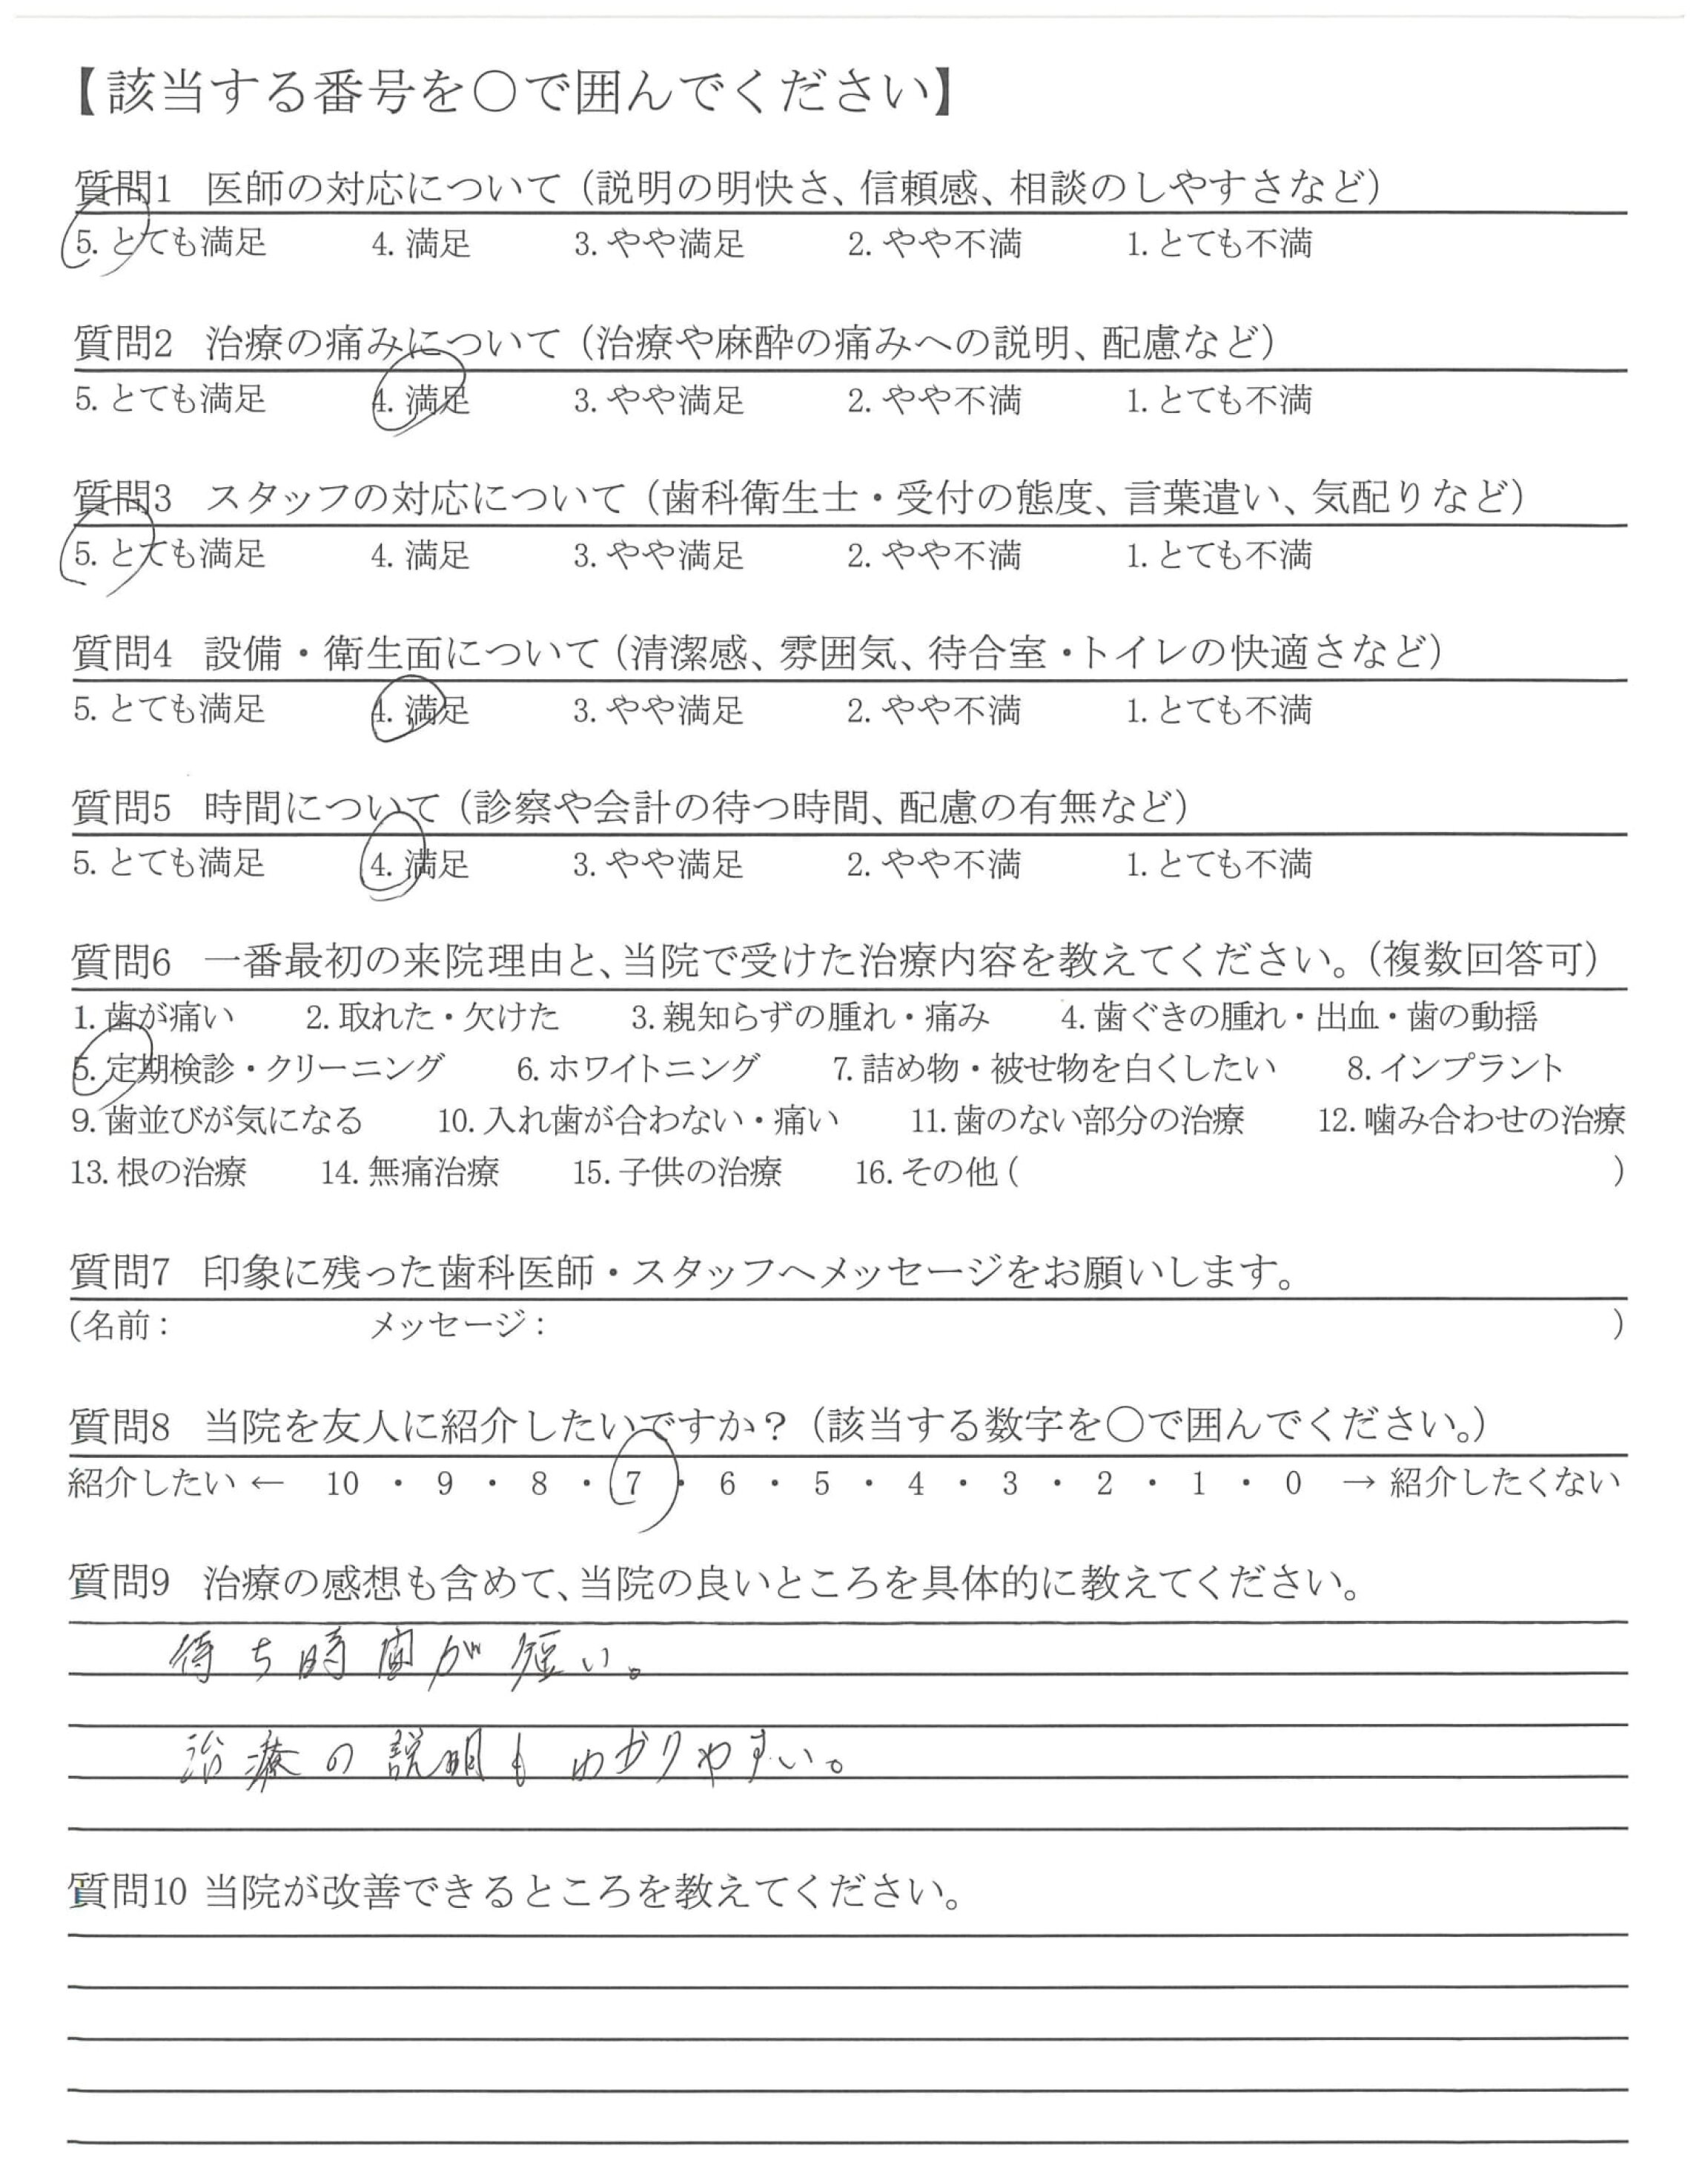 【該当する番号を○で囲んでください】
質問1 医師の対応について（説明の明快さ、信頼感、相談のしやすさなど）
5. とても満足 4. 満足 3. やや満足 2. やや不満 1. とても不満
質問2 治療の痛みについて（治療や麻酔の痛みへの説明、配慮など）
5. とても満足 4. 満足 3. やや満足 2. やや不満 1. とても不満
質問3 スタッフの対応について（歯科衛生士・受付の態度、言葉遣い、気配りなど）
5. とても満足 4. 満足 3. やや満足 2. やや不満 1. とても不満
質問4 設備・衛生面について（清潔感、雰囲気、待合室・トイレの快適さなど）
5. とても満足 4. 満足 3. やや満足 2. やや不満 1. とても不満
質問5 時間について（診察や会計の待つ時間、配慮の有無など）
5. とても満足 4. 満足 3. やや満足 2. やや不満 1. とても不満
質問6 一番最初の来院理由と、当院で受けた治療内容を教えてください。（複数回答可）
1. 歯が痛い 2. 取れた・欠けた 3. 親知らずの腫れ・痛み 4. 歯ぐきの腫れ・出血・歯の動揺
5. 定期検診・クリーニング 6. ホワイトニング 7. 詰め物・被せ物を白くしたい 8. インプラント
9. 歯並びが気になる 10. 入れ歯が合わない・痛い 11. 歯のない部分の治療 12. 噛み合わせの治療
13. 根の治療 14. 無痛治療 15. 子供の治療 16. その他 ( )
質問7 印象に残った歯科医師・スタッフへメッセージをお願いします。
(名前： メッセージ： )
質問8 当院を友人に紹介したいですか？（該当する数字を○で囲んでください。）
紹介したい ← 10 ・ 9 ・ 8 ・ 7 ・ 6 ・ 5 ・ 4 ・ 3 ・ 2 ・ 1 ・ 0 → 紹介したくない
質問9 治療の感想も含めて、当院の良いところを具体的に教えてください。
待ち時間が短い。
治療の説明もわかりやすい。
質問10 当院が改善できるところを教えてください。